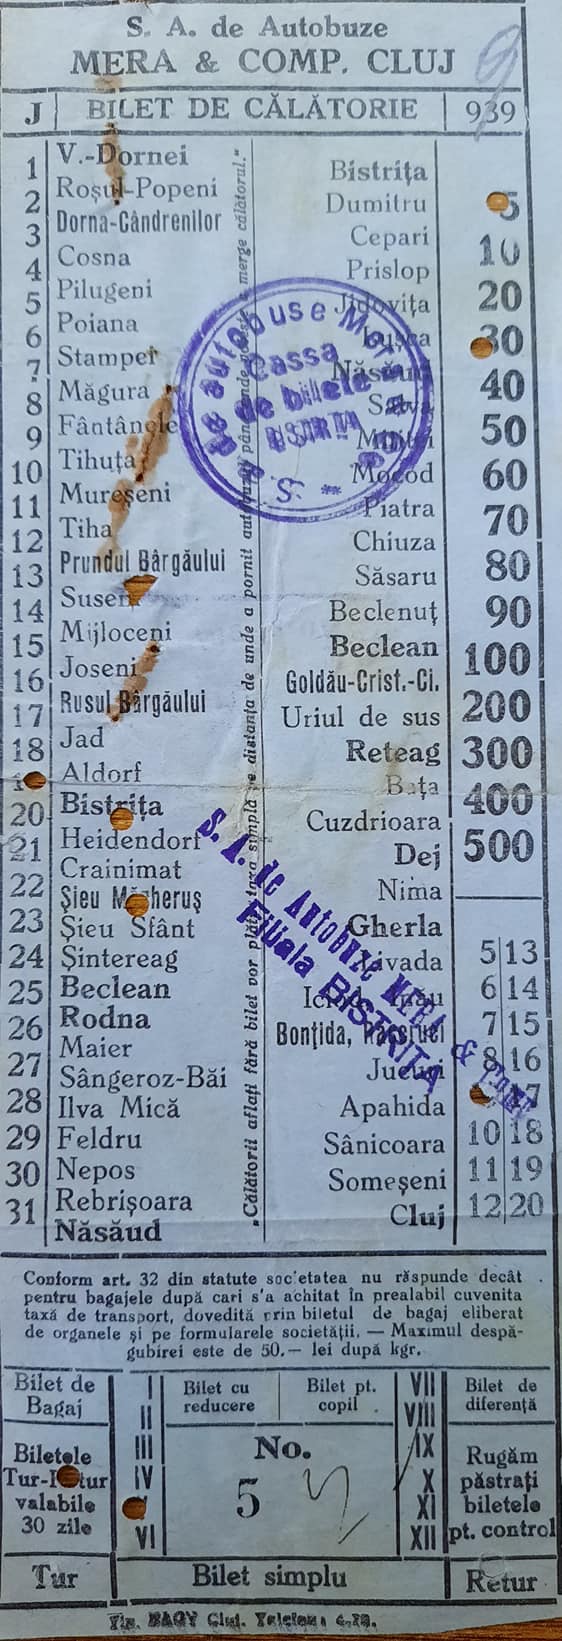 S. A. de Autobuze
MERA & COMP. CLUJ
J BILET DE CĂLĂTORIE 939
1 V.-Dornei
2 Roșul-Popeni
3 Dorna-Cândrenilor
4 Cosna
5 Pilugeni
6 Poiana
7 Stamper
8 Măgura
9 Fântânele
10 Tihuța
11 Mureșeni
12 Tiha
13 Prundul Bârgăului
14 Suseni
15 Mijloceni
16 Joseni
17 Rusul Bârgăului
18 Jad
Aldorf
20 Bistrița
21 Heidendorf
22 Crainimat
23 Șieu Măgheruș
24 Șieu Sfânt
25 Șintereag
26 Beclean
27 Rodna
28 Maier
29 Sângeroz-Băi
30 Ilva Mică
31 Feldru
Nepos
Rebrișoara
Năsăud
„Călătorii aflați fără bilet vor plăti taxa simplă pe distanța de unde a pornit autobuzul până unde voește a merge călătorul.“
Bistrița
Dumitru
Cepari
Prislop
Jidovița
Năsăud
Salva
Mocod
Piatra
Chiuza
Săsaru
Beclenuț
Beclean
Goldău-Crist.-Ci.
Uriul de sus
Reteag
Bața
Cuzdrioara
Dej
Nima
Gherla
Livada
Bonțida,
Jucuri
Apahida
Sânicoara
Someșeni
Cluj
5
10
20
30
40
50
60
70
80
90
100
200
300
400
500
5 13
6 14
7 15
8 16
17
10 18
11 19
12 20
S. A. de autobuse Mera
Cassa
de bilete
BISTRIȚA
S. A. de Autobuze MERA & COMP.
Filiala BISTRITA
Conform art. 32 din statute societatea nu răspunde decât
pentru bagajele după cari s'a achitat în prealabil cuvenita
taxă de transport, dovedită prin biletul de bagaj eliberat
de organele și pe formularele societății. — Maximul despă-
gubirei este de 50.— lei după kgr.
Bilet de
Bagaj
Biletele
Tur-Retur
valabile
30 zile
Tur
I
II
III
IV
V
VI
Bilet cu
reducere
Bilet pt.
copil
No.
5
Bilet simplu
VII
VIII
IX
X
XI
XII
Bilet de
diferență
Rugăm
păstrați
biletele
pt. control
Retur
Tip. NAGY Cluj. Telefon: